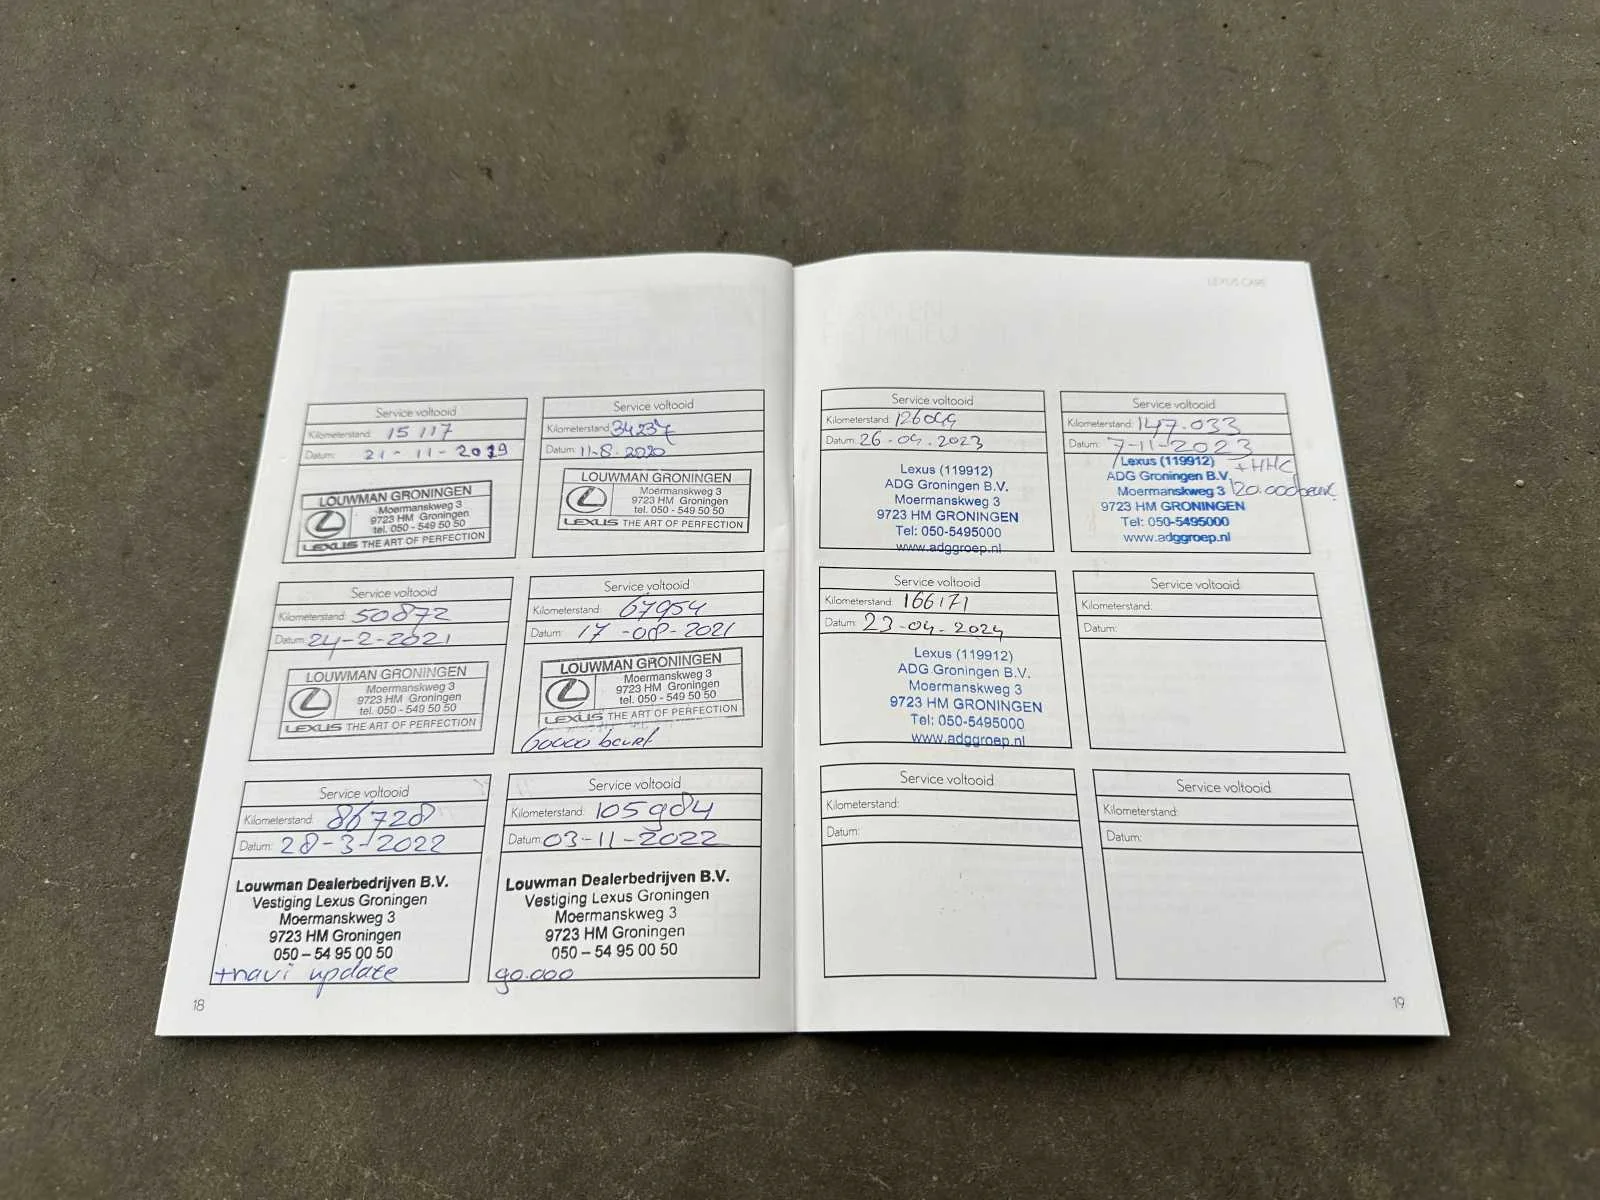 Service voltooid
Kilometerstand: 15 117
Datum: 21-11-2019
LOUWMAN GRONINGEN
Moermanskweg 3
9723 HM Groningen
tel. 050 - 549 50 50
LEXUS THE ART OF PERFECTION
Service voltooid
Kilometerstand: 34237
Datum: 11-8-2020
LOUWMAN GRONINGEN
Moermanskweg 3
9723 HM Groningen
tel. 050 - 549 50 50
LEXUS THE ART OF PERFECTION
Service voltooid
Kilometerstand: 50872
Datum: 24-2-2021
LOUWMAN GRONINGEN
Moermanskweg 3
9723 HM Groningen
tel. 050 - 549 50 50
LEXUS THE ART OF PERFECTION
Service voltooid
Kilometerstand: 67954
Datum: 17-08-2021
LOUWMAN GRONINGEN
Moermanskweg 3
9723 HM Groningen
tel. 050 - 549 50 50
LEXUS THE ART OF PERFECTION
60000 beurt
Service voltooid
Kilometerstand: 86728
Datum: 28-3-2022
Louwman Dealerbedrijven B.V.
Vestiging Lexus Groningen
Moermanskweg 3
9723 HM Groningen
050 – 54 95 00 50
+navi update
Service voltooid
Kilometerstand: 105984
Datum: 03-11-2022
Louwman Dealerbedrijven B.V.
Vestiging Lexus Groningen
Moermanskweg 3
9723 HM Groningen
050 – 54 95 00 50
90.000
18
LEXUS CARE
Service voltooid
Kilometerstand:
Datum: 26-04-2023
Lexus (119912)
ADG Groningen B.V.
Moermanskweg 3
9723 HM GRONINGEN
Tel: 050-5495000
www.adggroep.nl
Service voltooid
Kilometerstand: 147.033
Datum: 7-11-2023
Lexus (119912) +HHC
ADG Groningen B.V.
Moermanskweg 3 120.000 beurt
9723 HM GRONINGEN
Tel: 050-5495000
www.adggroep.nl
Service voltooid
Kilometerstand: 166171
Datum: 23-04-2024
Lexus (119912)
ADG Groningen B.V.
Moermanskweg 3
9723 HM GRONINGEN
Tel: 050-5495000
www.adggroep.nl
Service voltooid
Kilometerstand:
Datum:
Service voltooid
Kilometerstand:
Datum:
Service voltooid
Kilometerstand:
Datum:
19